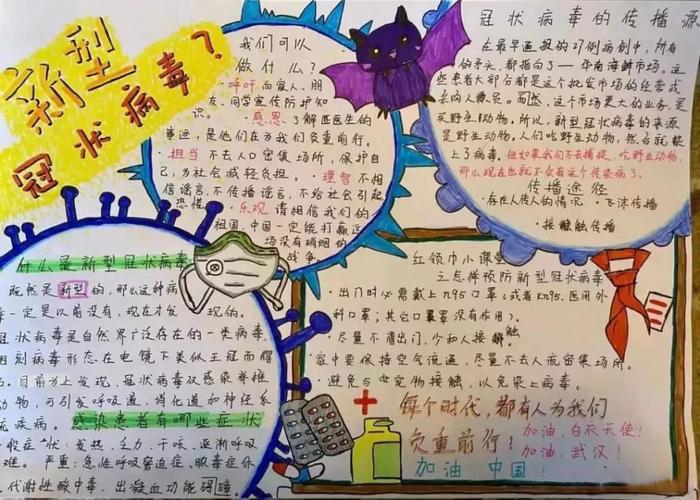 新型
冠状病毒？
我们可以
做什么？
·呼吁向家人、朋
友、同学宣传防护知
识。
·感恩 了解医医生的
事迹，是他们在为我们负重前行。
·担当 不去人口密集场所，保护自
己，为社会减轻负担。·理智 不相
信谣言，不传播谣言，不给社会引起
恐慌。·乐观 请相信我们的
祖国，中国一定能打赢这
场没有硝烟的
战争
冠状病毒的传播源
在最早通报的27例病例中，所有
的，都指向了——华南海鲜市场。这
些患者大部分都是这个批发市场的经营或
采购人员。而然，这个市场更大的业务，是
买野生动物。所以，新型冠状病毒的来源
是野生动物，人们吃野生动物，然后就被
上了病毒。但如果我们不去捕捉、吃野生动物，
那么现在也就不会有这个传染病了。
传播途径
·存在人传人的情况 ·飞沫传播
·接触传播
什么是新型冠状病毒
既然是新型的，那么这种病
毒一定是以前没有，现在才发现的。
冠状病毒是自然界广泛存在的一类病毒，
因则病毒形态在电镜下类似王冠而得
名。目前为止发现，冠状病毒仅感染脊椎
动物，可引发呼吸道、消化道和神经系
统疾病。感染患者有哪些症状
一般症状：发热、乏力、干咳、逐渐呼吸
难。严重：急性呼吸窘迫症、脓毒症休
代谢性酸中毒、出凝血功能障碍
红领巾小课堂
之怎样预防新型冠状病毒
·出门时必需戴上n95口罩（或者kn95、医用外
科口罩；其它口罩没有作用）。
·尽量不要出门，少和人接触
·家中要保持空气流通，尽量不去人流密集场所。
避免与动物接触，以免染上病毒。
每个时代，都有人为我们
负重前行！
加油，白衣天使！
加油，武汉！
加油 中国！